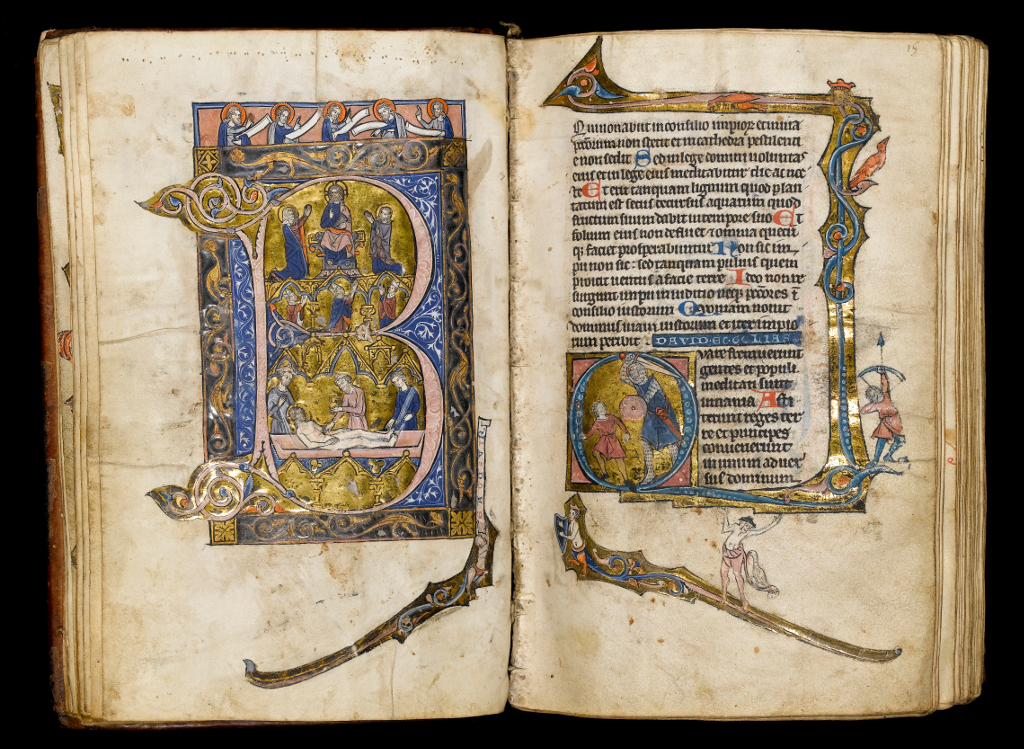 Qui non abiit in consilio impioꝝ et in uia
pccõrum non stetit et in cathedra pestilenti
e non sedit Sed in lege domini uoluntas
eius et in lege eius meditabitur die ac noc
te Et erit tanquam lignum quod plan
tatum est secus decursus aquarum quod
fructum suum dabit in tempore suo Et
folium eius non defluet ⁊ omnia quecū
qꝫ faciet prosperabuntur Non sic im
pii non sic : sed tanquam puluis quem
proicit uentus a facie terre Ideo non re
surgunt impii in iudicio neqꝫ pccõres ī
consilio iustorum Quoniam nouit
dominus uiam iustorum et iter impio
rum peribit DAVID
Quare fremuerunt
gentes et populi
meditati sunt
inania Asti
terunt reges ter
re et principes
conuenerunt
in unum aduer
sus dominum